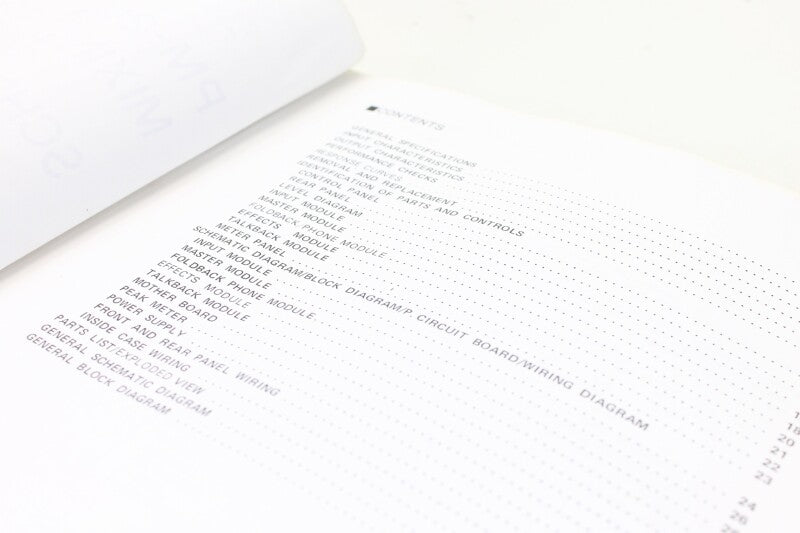 ■CONTENTS
GENERAL SPECIFICATIONS
INPUT CHARACTERISTICS
OUTPUT CHARACTERISTICS
PERFORMANCE CHECKS
RESPONSE CURVES
REMOVAL AND REPLACEMENT
IDENTIFICATION OF PARTS AND CONTROLS
CONTROL PANEL
REAR PANEL
LEVEL DIAGRAM
INPUT MODULE
MASTER MODULE
FOLDBACK PHONE MODULE
EFFECTS MODULE
TALKBACK MODULE
METER PANEL
SCHEMATIC DIAGRAM/BLOCK DIAGRAM/P CIRCUIT BOARD/WIRING DIAGRAM
INPUT MODULE
MASTER MODULE
FOLDBACK PHONE MODULE
EFFECTS MODULE
TALKBACK MODULE
MOTHER BOARD
PEAK METER
POWER SUPPLY
FRONT AND REAR PANEL WIRING
INSIDE CASE WIRING
PARTS LIST/EXPLODED VIEW
GENERAL SCHEMATIC DIAGRAM
GENERAL BLOCK DIAGRAM
18
20
21
22
23
24
26